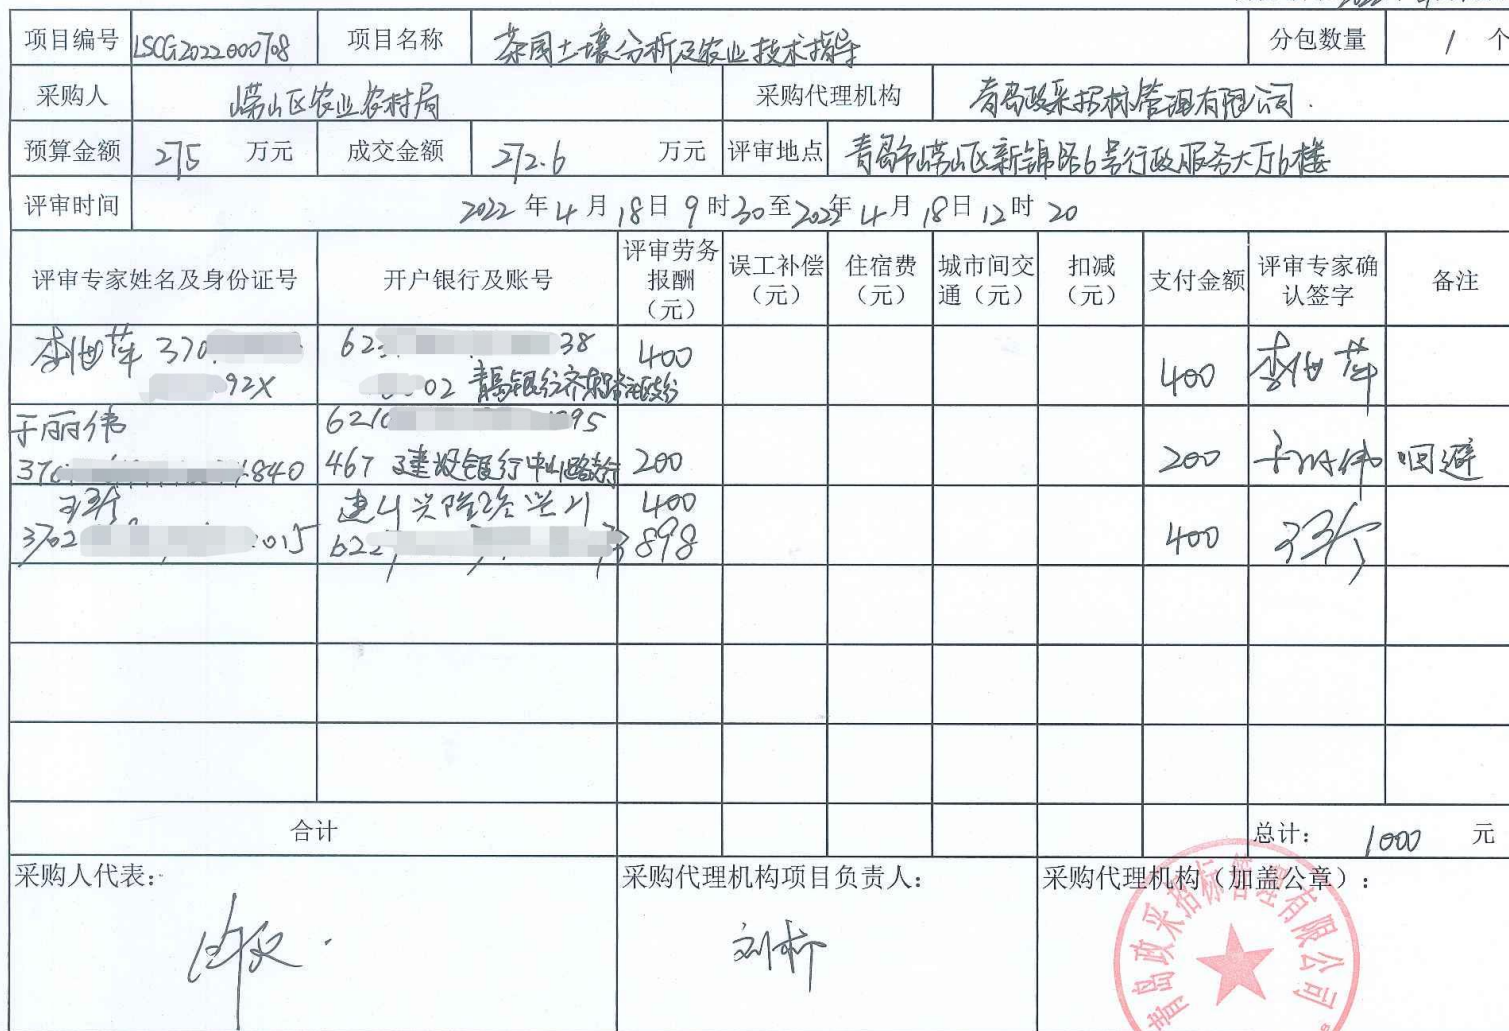 项目编号 LSCG2022000708 项目名称 茶园土壤分析及农业技术指导 分包数量 1 个
采购人 崂山区农业农村局 采购代理机构 青岛政采招标管理有限公司.
预算金额 275 万元 成交金额 272.6 万元 评审地点 青岛市崂山区新锦路6号行政服务大厅6楼
评审时间 2022 年 4 月 18日 9 时 30 至 2022年 4 月 18日 12时 20
评审专家姓名及身份证号 开户银行及账号 评审劳务报酬(元) 误工补偿(元) 住宿费(元) 城市间交通(元) 扣减(元) 支付金额 评审专家确认签字 备注
370 62 38 400
92X 02 青岛银行 400
于丽伟 621 95
370 840 467 建设银行中山路支行 200 200 于丽伟 回避
建行兴隆路 400
3702 015 622 3 898 400
合计 总计: 1000 元
采购人代表: 采购代理机构项目负责人: 采购代理机构(加盖公章):
青岛政采招标管理有限公司